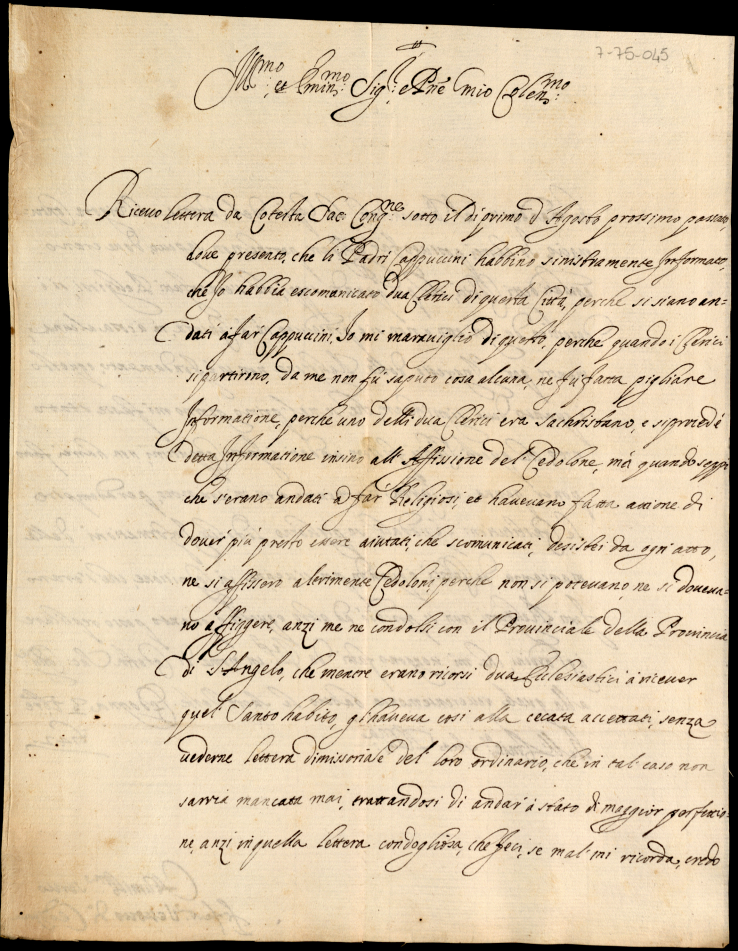 7-75-045
Ill.mo et Emin.mo Sig.r e Pne mio Colen.mo
Riceuo lettera da Cotesta Sac: Cong.ne sotto il di primo d'Agosto prossimo passato,
doue presento, che li Padri Cappuccini habbino sinistramente Informato,
che Io habbia escomunicato dua Clerici di questa Città, perche si siano an=
dati à far Cappuccini, Io mi marauiglio di questo, perche quando i Clerici
si partirono, da me non fù saputo cosa alcuna, ne fù fatta pigliare
Informatione, perche uno delli dua Clerici era Sachristano, e si procedé
detta Informatione insino all'Affissione del Cedolone, mà quando seppi
che s'erano andati à far Religiosi, et haueuano fatta attione di
douer più presto essere aiutati, che scomunicati, desistei da ogni atto,
ne si affissero altrimente Cedoloni, perche non si poteuano, ne si doueua=
no affiggere, anzi me ne condolsi con il Prouinciale della Prouincia
di S. Angelo, che mentre erano ricorsi dua Ecclesiastici à riceuer
quel Santo habito, gl'haueua così alla cecata accettati, senza
uederne lettera dimissoriale del loro ordinario, che in tal caso non
sarria mancata mai, trattandosi di andar à stato di maggior perfettio=
ne, anzi in quella lettera condogliosa, che feci, se mal mi ricorda, credo